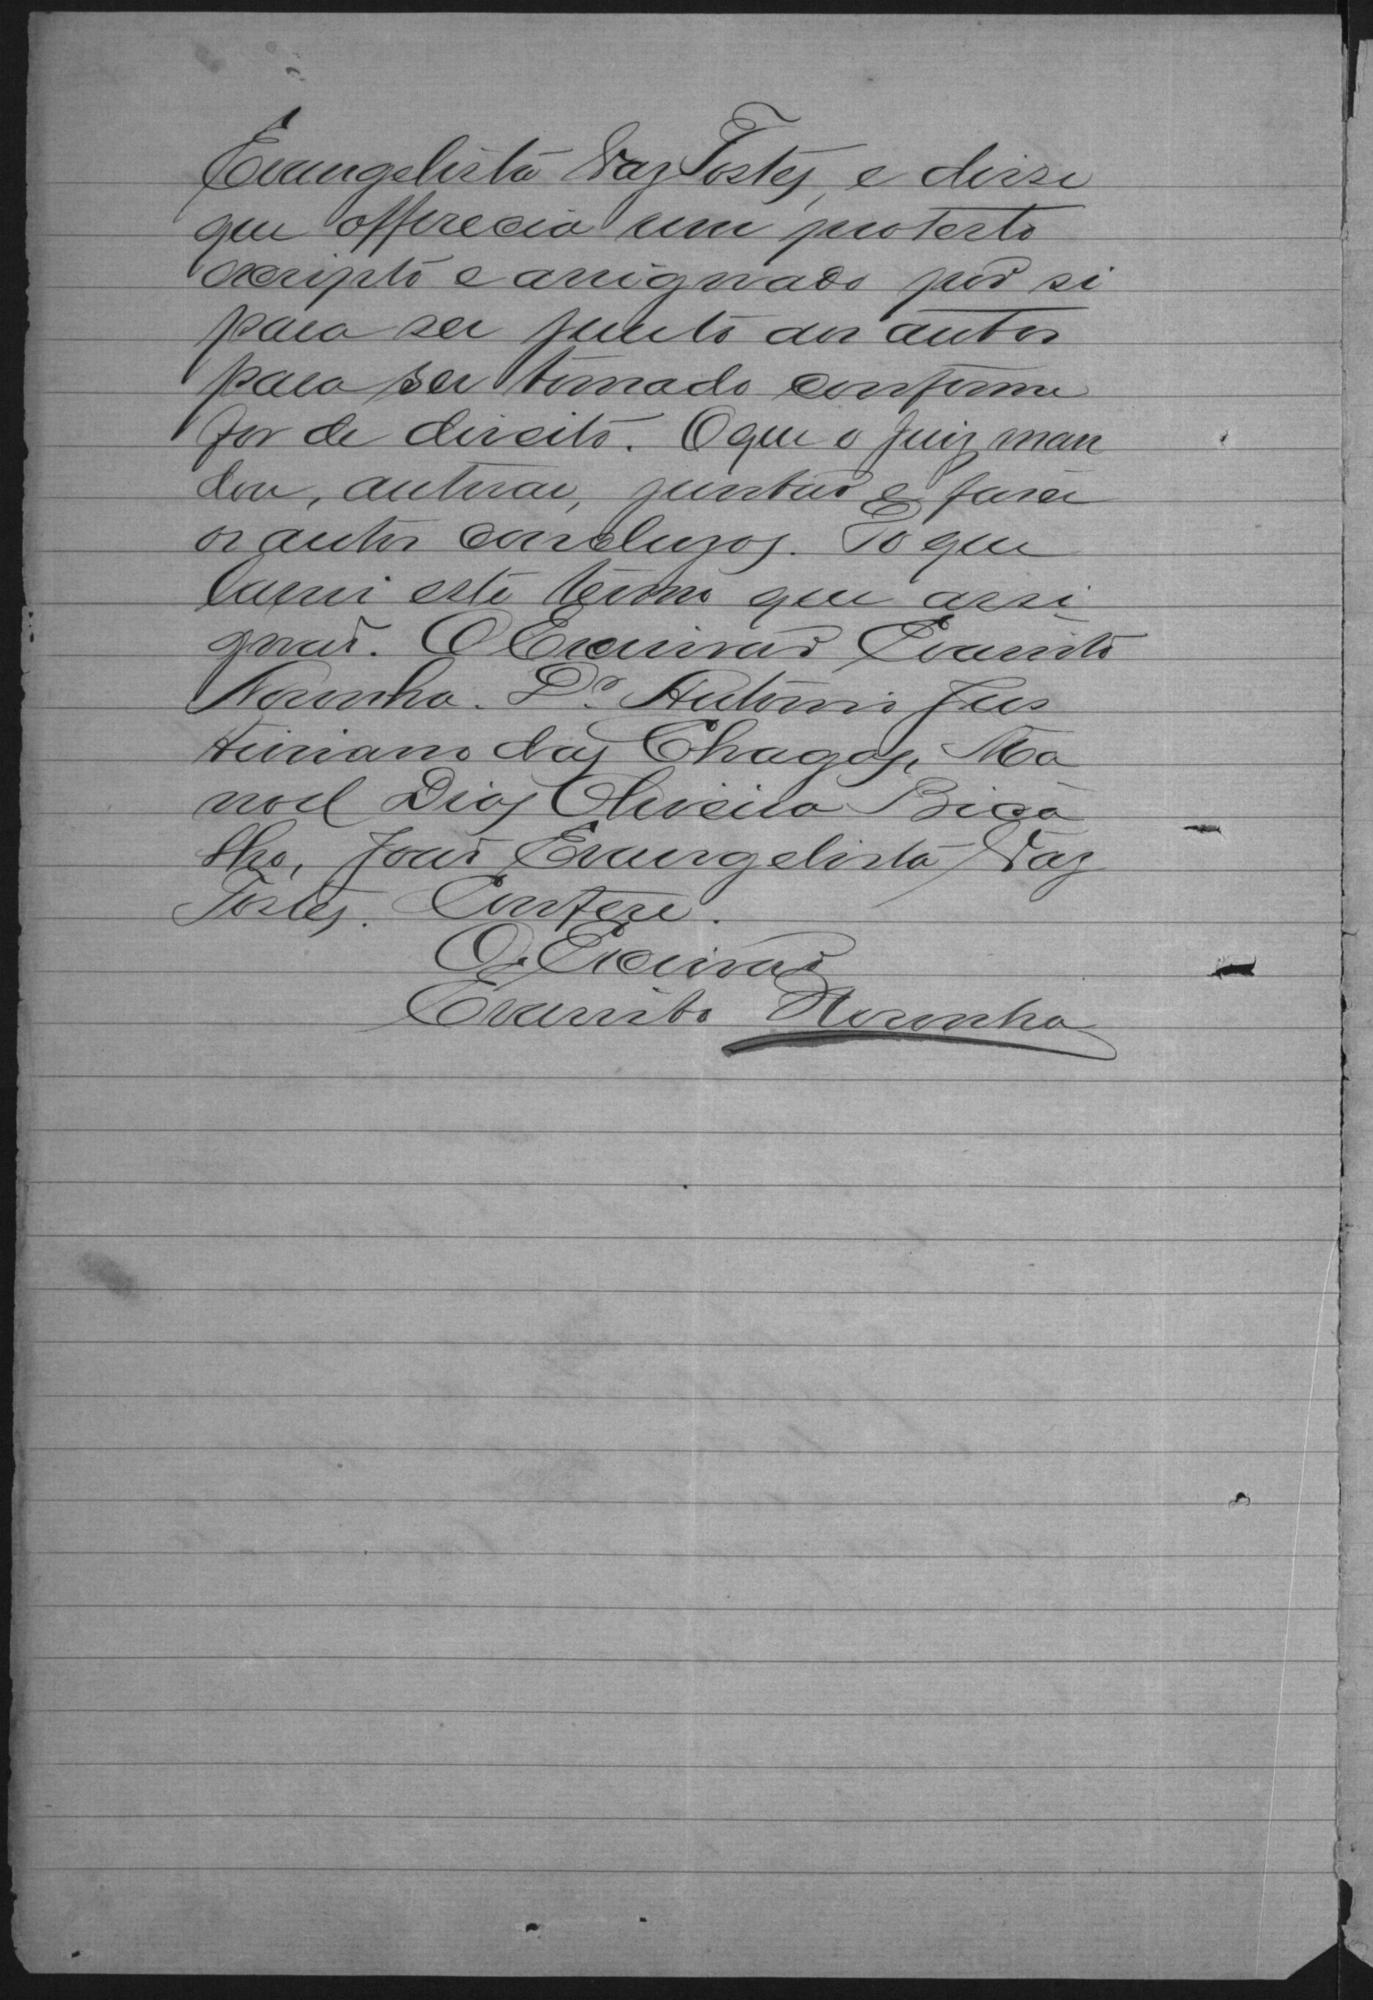 Evangelista Vaz Tostes, e disse
que offerecia um protesto
escripto e assignado por si
para ser junto aos autos
para ser tomado conforme
for de direito. O que o Juiz man
dou, autuar, juntar e fazer
os autos concluzos. Do que
lavrei este termo que assi
gnao. O Escrivão Evaristo
Noronha. Dr. Antonio Jus
tiniano das Chagas, Ma
noel Dias Oliveira Bica
lho, João Evangelista Vaz
Tostes. Confere.
O Escrivão
Evaristo Noronha